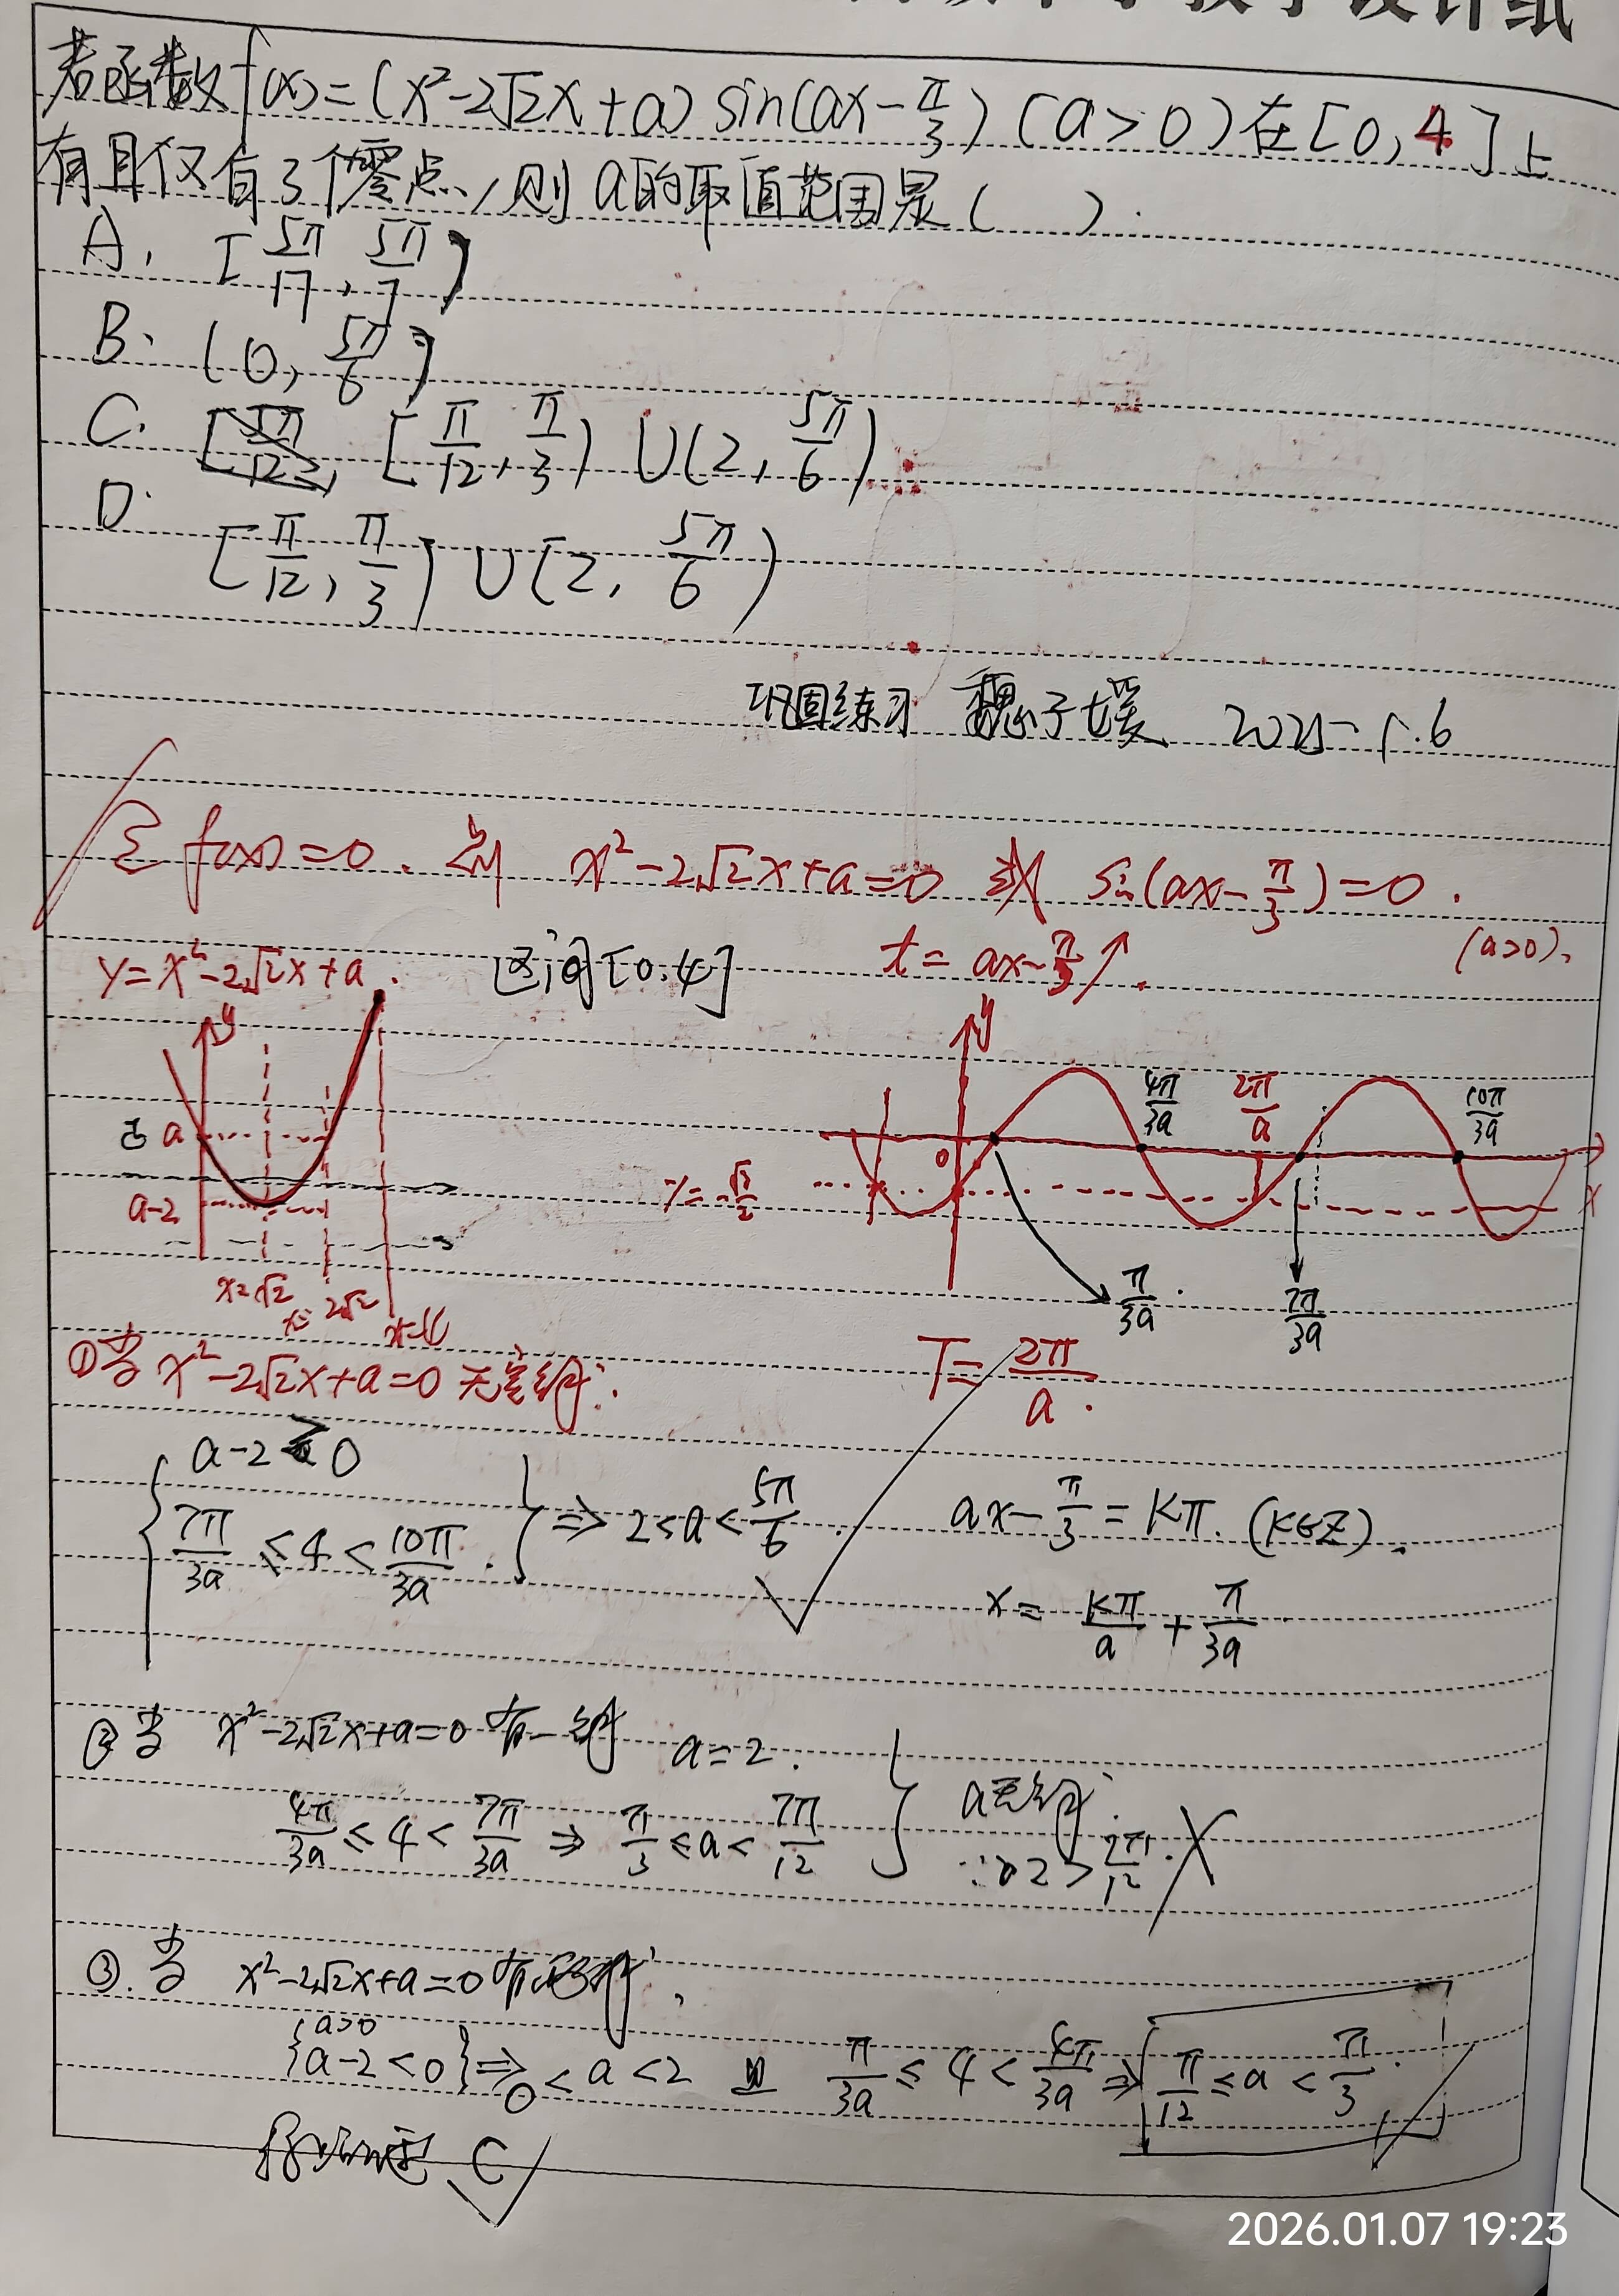 若函数f(x)=(x²-2√2x+a)sin(ax-π/3)(a>0)在[0,4]上
有且仅有3个零点,则a的取值范围是( ).
A. [5π/17, 5π/7)
B. (0, 5π/6]
C. [π/12, π/3) ∪(2, 5π/6)
D. [π/12, π/3] ∪[2, 5π/6)
巩固练习 魏子媛 2025-1.6
f(x)=0. 则 x²-2√2x+a=0 或 sin(ax-π/3)=0.
y=x²-2√2x+a. 区间[0.4] t=ax-π/3↑. (a>0).
y
a
a-2
x=√2 x=2√2 x=4
y
4π/3a 2π/a 10π/3a
0
x
y=-√3/2
π/3a. 7π/3a
①当 x²-2√2x+a=0 无实根:
T=2π/a.
a-2>0
7π/3a ≤4<10π/3a. ⇒ 2<a<5π/6.
ax-π/3=kπ. (k∈Z).
x=kπ/a+π/3a
②当 x²-2√2x+a=0 有一根 a=2.
4π/3a ≤4<7π/3a ⇒ π/3 ≤a<7π/12
a无解:
∵2>7π/12.
③.当 x²-2√2x+a=0有两根,
a>0
a-2<0 ⇒ 0<a<2 且 π/3a ≤4<4π/3a ⇒ π/12 ≤a<π/3.
C
2026.01.07 19:23